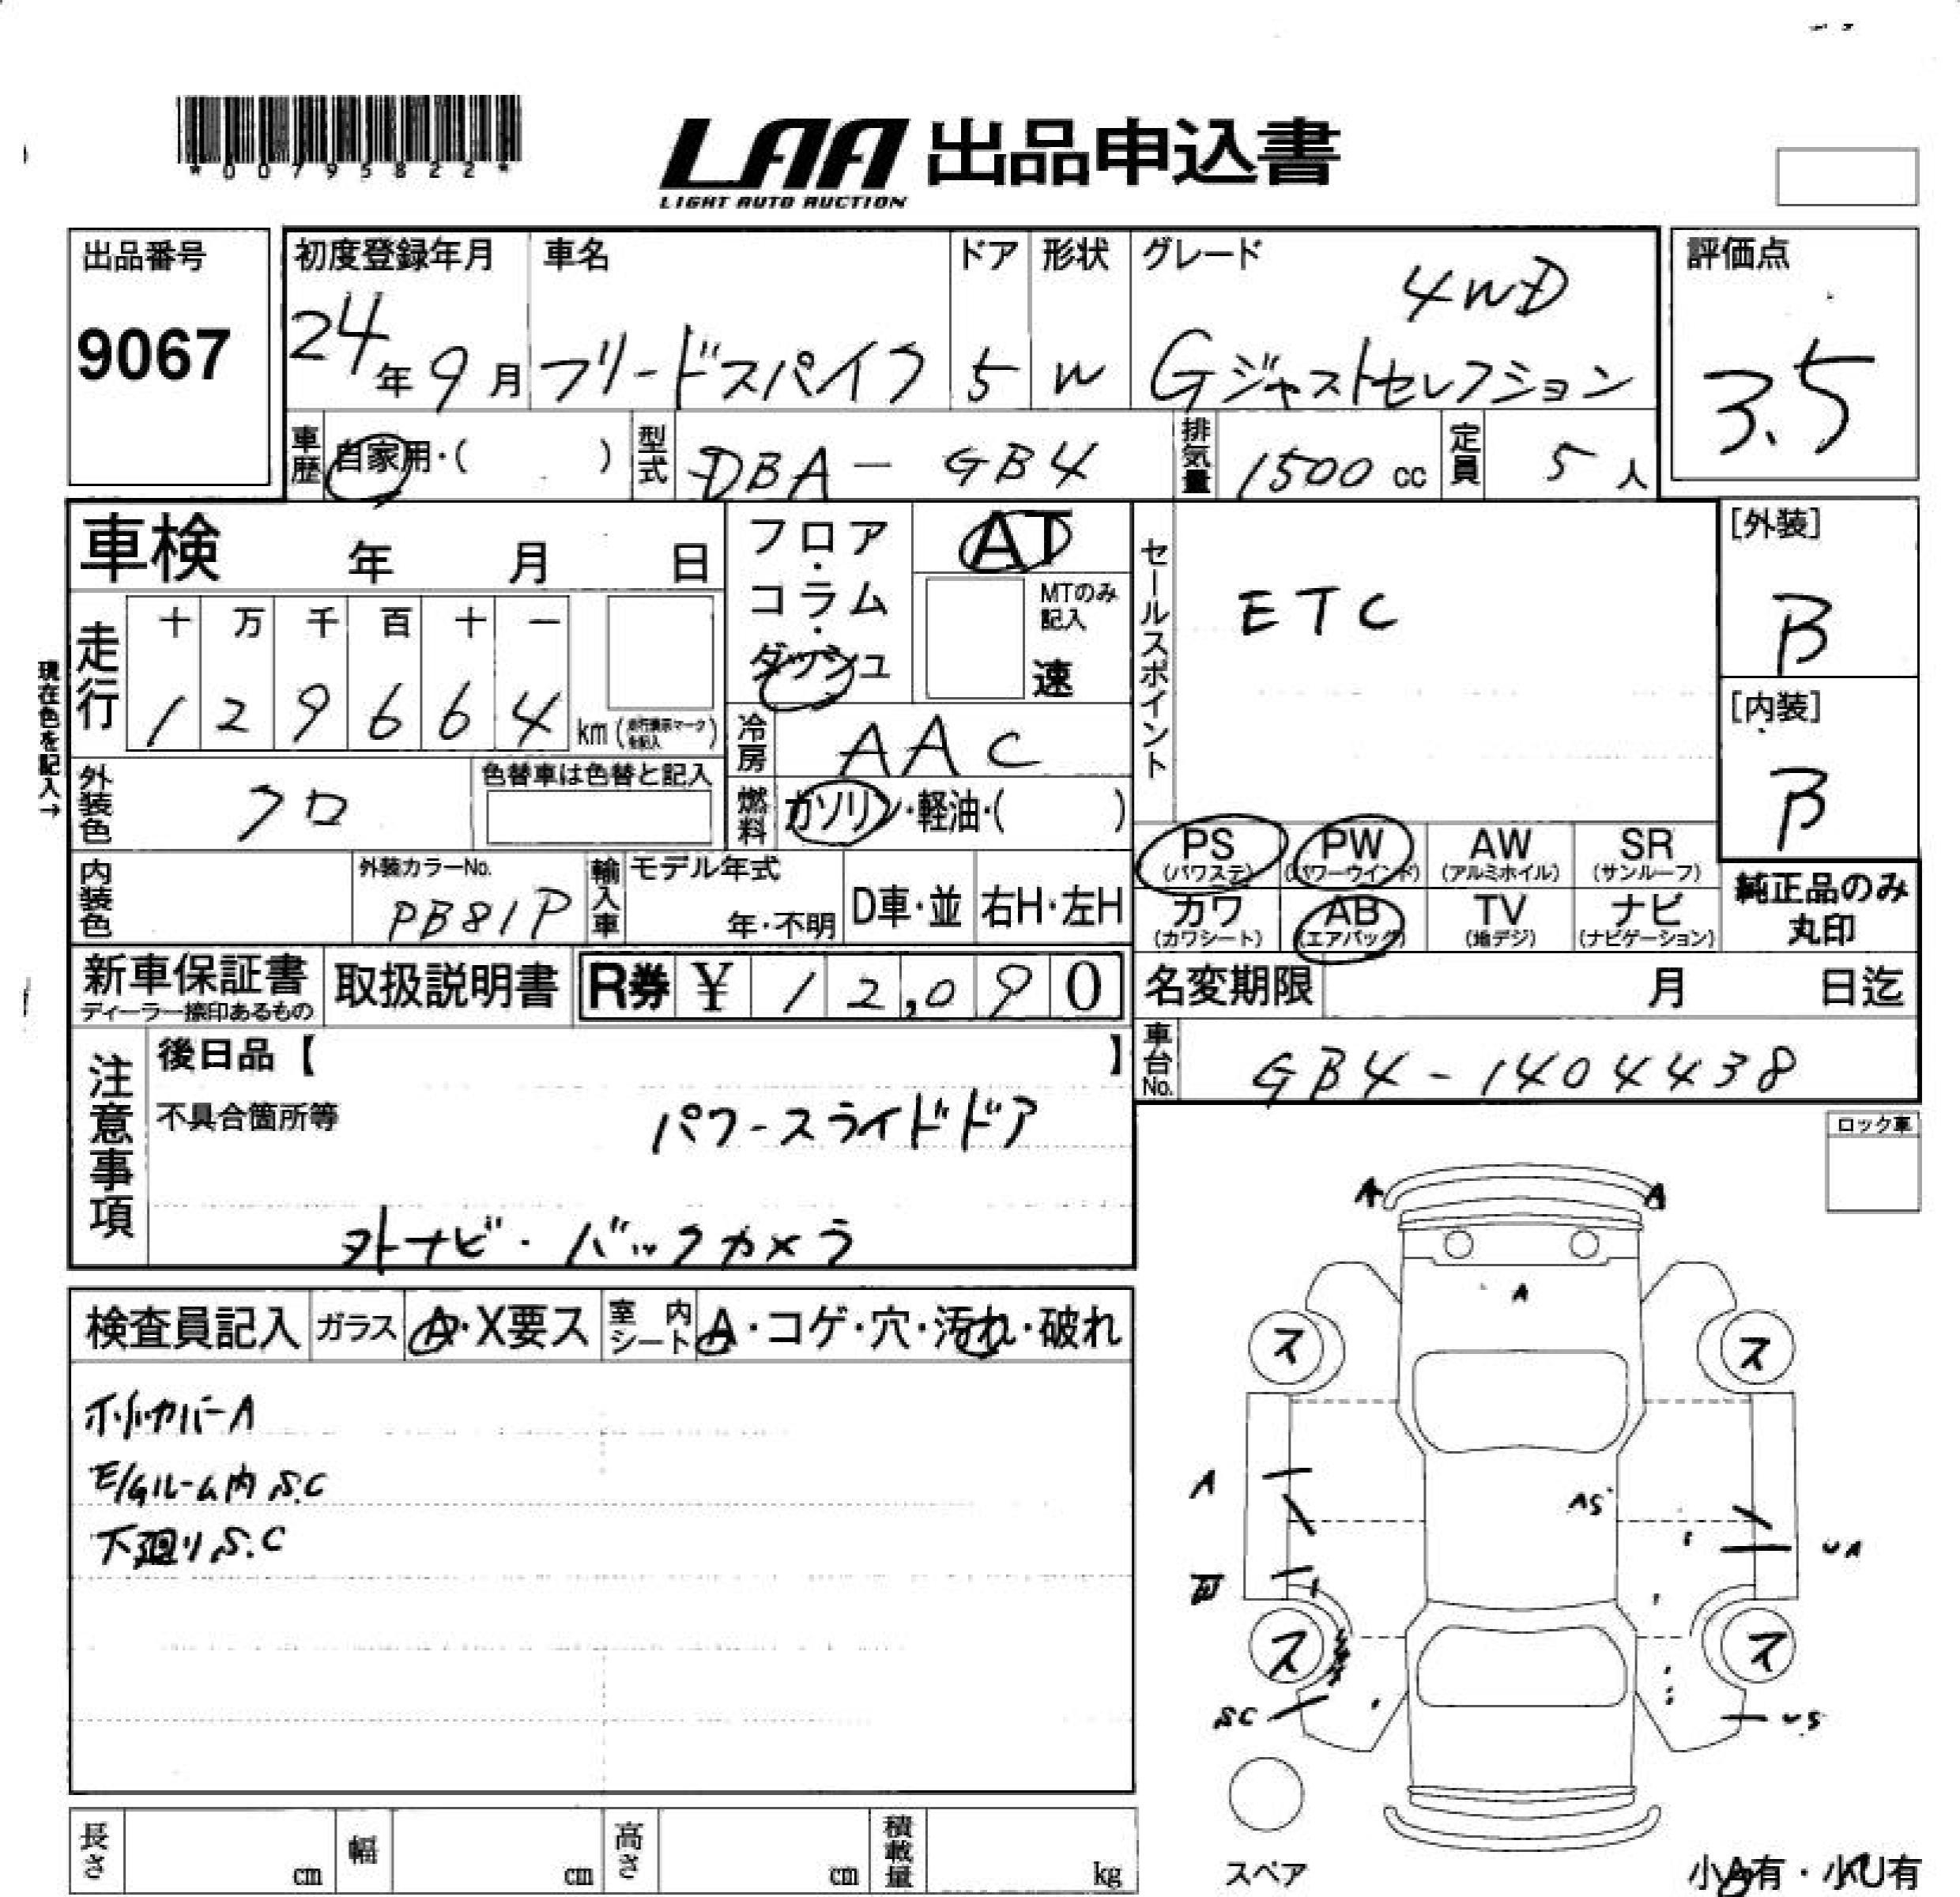 *00795822*
LAA 出品申込書
LIGHT AUTO AUCTION
出品番号
9067
初度登録年月
24年9月
車名
フリードスパイク
ドア
5
形状
W
グレード
4WD
Gジャストセレクション
評価点
3.5
車歴
自家用・( )
型式
DBA-GB4
排気量
1500cc
定員
5人
車検 年 月 日
フロア・コラム・ダッシュ
AT
MTのみ記入
速
セールスポイント
ETC
[外装]
B
[内装]
B
現在色を記入→
走行
十 万 千 百 十 一
1 2 9 6 6 4 km
冷房
AAC
燃料
ガソリン・軽油・( )
外装色
クロ
色替車は色替と記入
内装色
外装カラーNo.
PB81P
輸入車
モデル年式
年・不明
D車・並
右H・左H
PS
(パワステ)
PW
(パワーウインド)
AW
(アルミホイル)
SR
(サンルーフ)
カワ
(カワシート)
AB
(エアバック)
TV
(地デジ)
ナビ
(ナビゲーション)
純正品のみ
丸印
新車保証書
ディーラー捺印あるもの
取扱説明書
R券 ¥ 12,090
名変期限 月 日迄
車台No.
GB4-1404438
注意事項
後日品【 】
不具合箇所等
パワースライドドア
外ナビ・バックカメラ
ロック車
検査員記入
ガラス
A・X要ス
室内シート
A・コゲ・穴・汚れ・破れ
E/Gルーム内 S.C
下廻り S.C
A
A
A
ス
ス
A
AS
UA
ス
ス
SC
US
スペア
小A有・小U有
長さ cm
幅 cm
高さ cm
積載量 kg